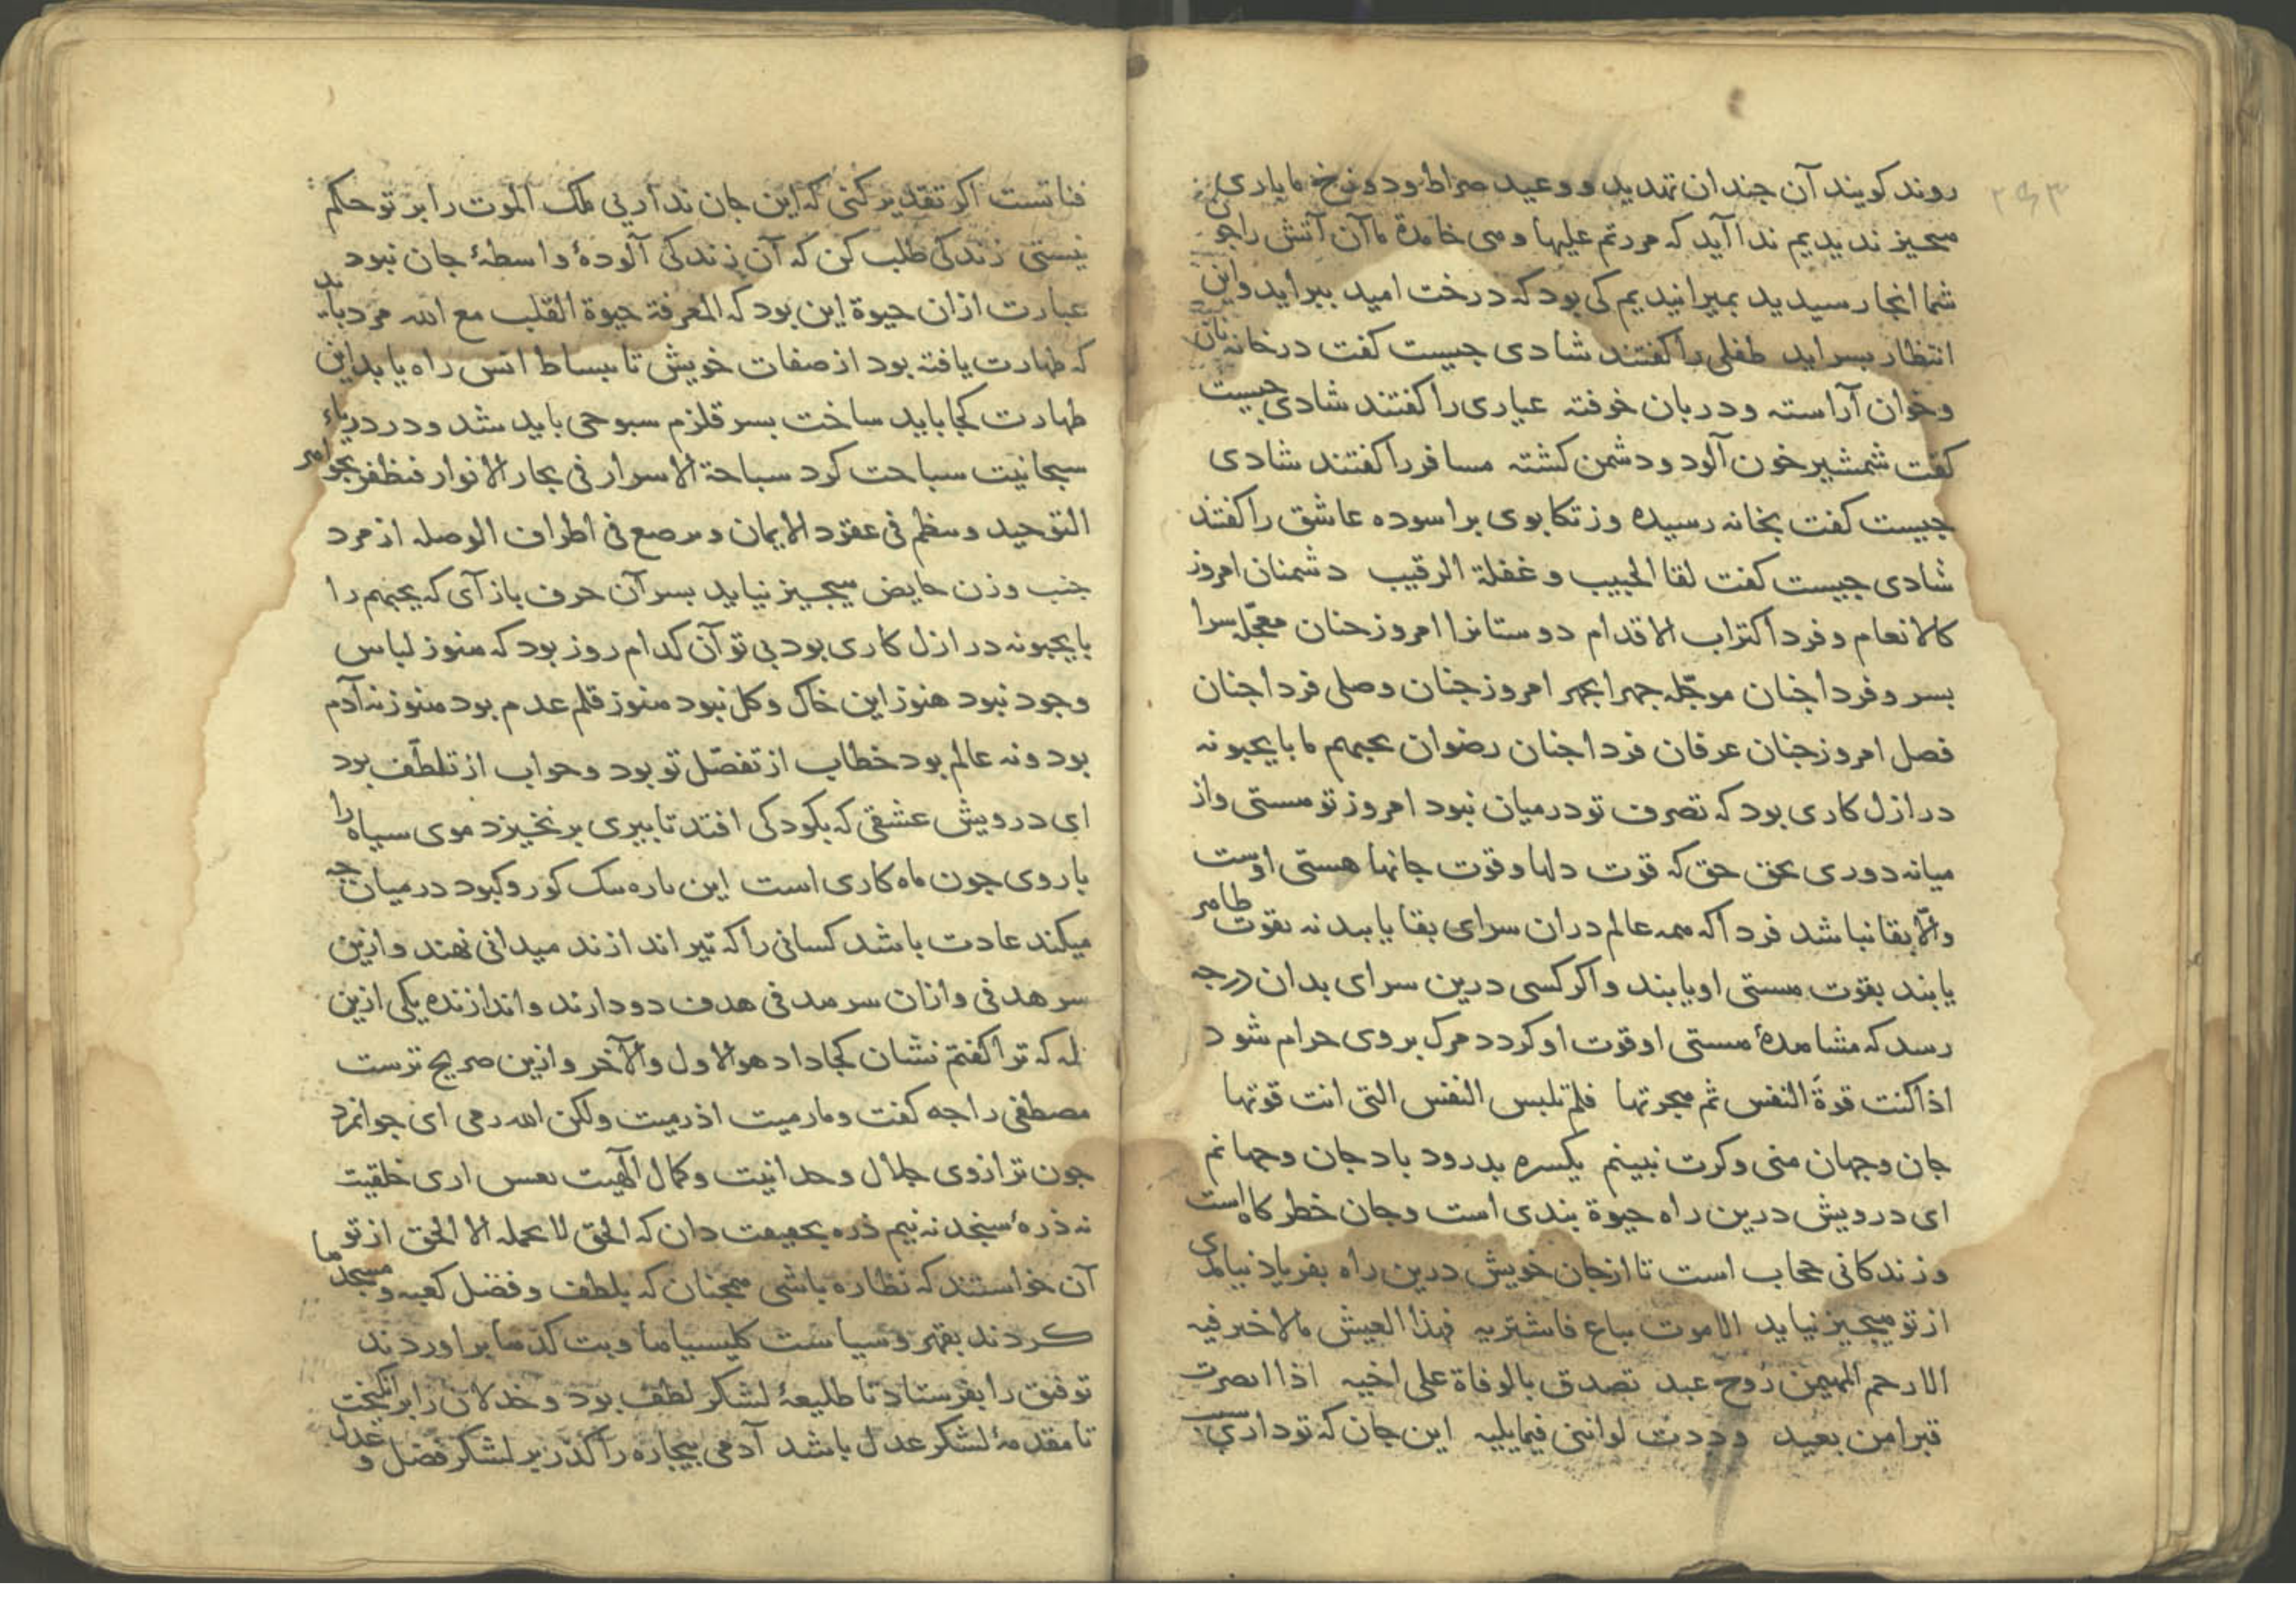 ۲۶۳
روند کویند آن جندان تهدید و وعید صراط و دوزخ ما باری
میجیز ندیدیم ندا آید که مررتم علیها و می خامدة ما آن آتش را جون
شما انجا رسیدید بمیرانیدیم کی بود که درخت امید ببراید واین
انتظار بسراید طفلی را کفتند شادی جیست کفت در خانه نان
وخوان آراسته ودربان خوفته عیاری را کفتند شادی جیست
کفت شمشیر خون آلود ودشمن کشته مسافر را کفتند شادی
جیست کفت بخانه رسیده وز تکابوی براسوده عاشق را کفتند
شادی جیست کفت لقا الحبیب و غفلة الرقیب دشمنان امروز
کالانعام و فردا کتراب الاقدام دوستانرا امروز جنان معجّله سرا
بسر وفردا جنان موجّله جهرا بجهر امروز جنان وصلی فردا جنان
فصل امروز جنان عرفان فردا جنان رضوان یحبهم ما با یحبونه
در ازل کاری بود که تصرف تو درمیان نبود امروز تو مستی واز
میانه دوری بحق حق که قوت دلها وقوت جانها هستی اوست
والّا بقا نباشد فردا که ممه عالم دران سرای بقا یابند نه بقوت طامر
یابند بقوت مستی او یابند و اکر کسی درین سرای بدان درجه
رسد که مشامدهٔ مستی او قوت او کردد مرک بروی حرام شود
اذا کنت قوة النفس ثم مجرتها فلم تلبس النفس التی انت قوتها
جان وجهان منی وکرت نبینم یکسره بدرود باد جان وجهانم
ای درویش درین راه حیوة بندی است وجان خطر کاه است
وزندکانی حجاب است تا از جان خویش درین راه بفریاد نیائی
از تو میجیز نیاید الا موت یباع فاشتریه فهذا العیش مالا خیر فیه
الا رحم المهیمن روح عبد تصدق بالوفاة علی اخیه اذا ابصرت
قبرا من بعید وددت لو اننی فیما یلیه این جان که تو داری
فنا تست اکر تقدیر کنی که این جان نداربی ملک الموت را بر تو حکم
نیستی زندکی طلب کن که آن زندکی آلودهٔ واسطهٔ جان نبود
عبارت ازان حیوة این بود که المعرفة حیوة القلب مع الله مرد باید
که طهارت یافته بود از صفات خویش تا ببساط انس راه یابد این
طهارت کجا باید ساخت بسر قلزم سبوحی باید شد ودر دریاء
سبحانیت سباحت کرد سباحة الاسرار فی بحار الانوار فنظفر بجوامر
التوحید وینظم فی عقود الایمان ویرصع فی اطراف الوصله از مرد
جنب وزن حایض میجیز نیاید بسر آن حرف باز آی که یحبهم را
با یحبونه در ازل کاری بود بی تو آن کدام روز بود که منوز لباس
وجود نبود هنوز این خاک وکل نبود منوز قلم عدم بود منوز نه آدم
بود ونه عالم بود خطاب از تفضّل تو بود وجواب از تلطّف بود
ای درویش عشقی که بکودکی افتد تا ببری بر نخیزد موی سیاه را
با روی جون ماه کاری است این باره سک کور وکبود درمیان جه
میکند عادت باشد کسانی را که تیر اندازند میدانی نهند وازین
سر هدفی وازان سر مدفی هدف دو دارند واندازنده یکی ازین
له که ترا کفتم نشان کجا داد هو الاول والآخر وازین صریح ترست
مصطفی را جه کفت وما رمیت اذ رمیت ولکن الله رمی ای جوانمرد
جون ترازوی جلال وحدانیت وکمال الهیت بعس اری خلقیت
نه ذرهٔ سنجد نه نیم ذره بحقیقت دان که الحق لا یحمله الا الحق از تو
آن خواستند که نظاره باشی ممجنان که بلطف و فضل کعبه و مسجدما
کردند بقهر وسیاست کلیسیاما وبت کدما براوردند
توفیق را بفرستاد تا طلیعهٔ لشکر لطف بود وخذلان را برانکیخت
تا مقدمهٔ لشکر عدل باشد آدمی بیجاره را کذر بر لشکر فضل و عدل